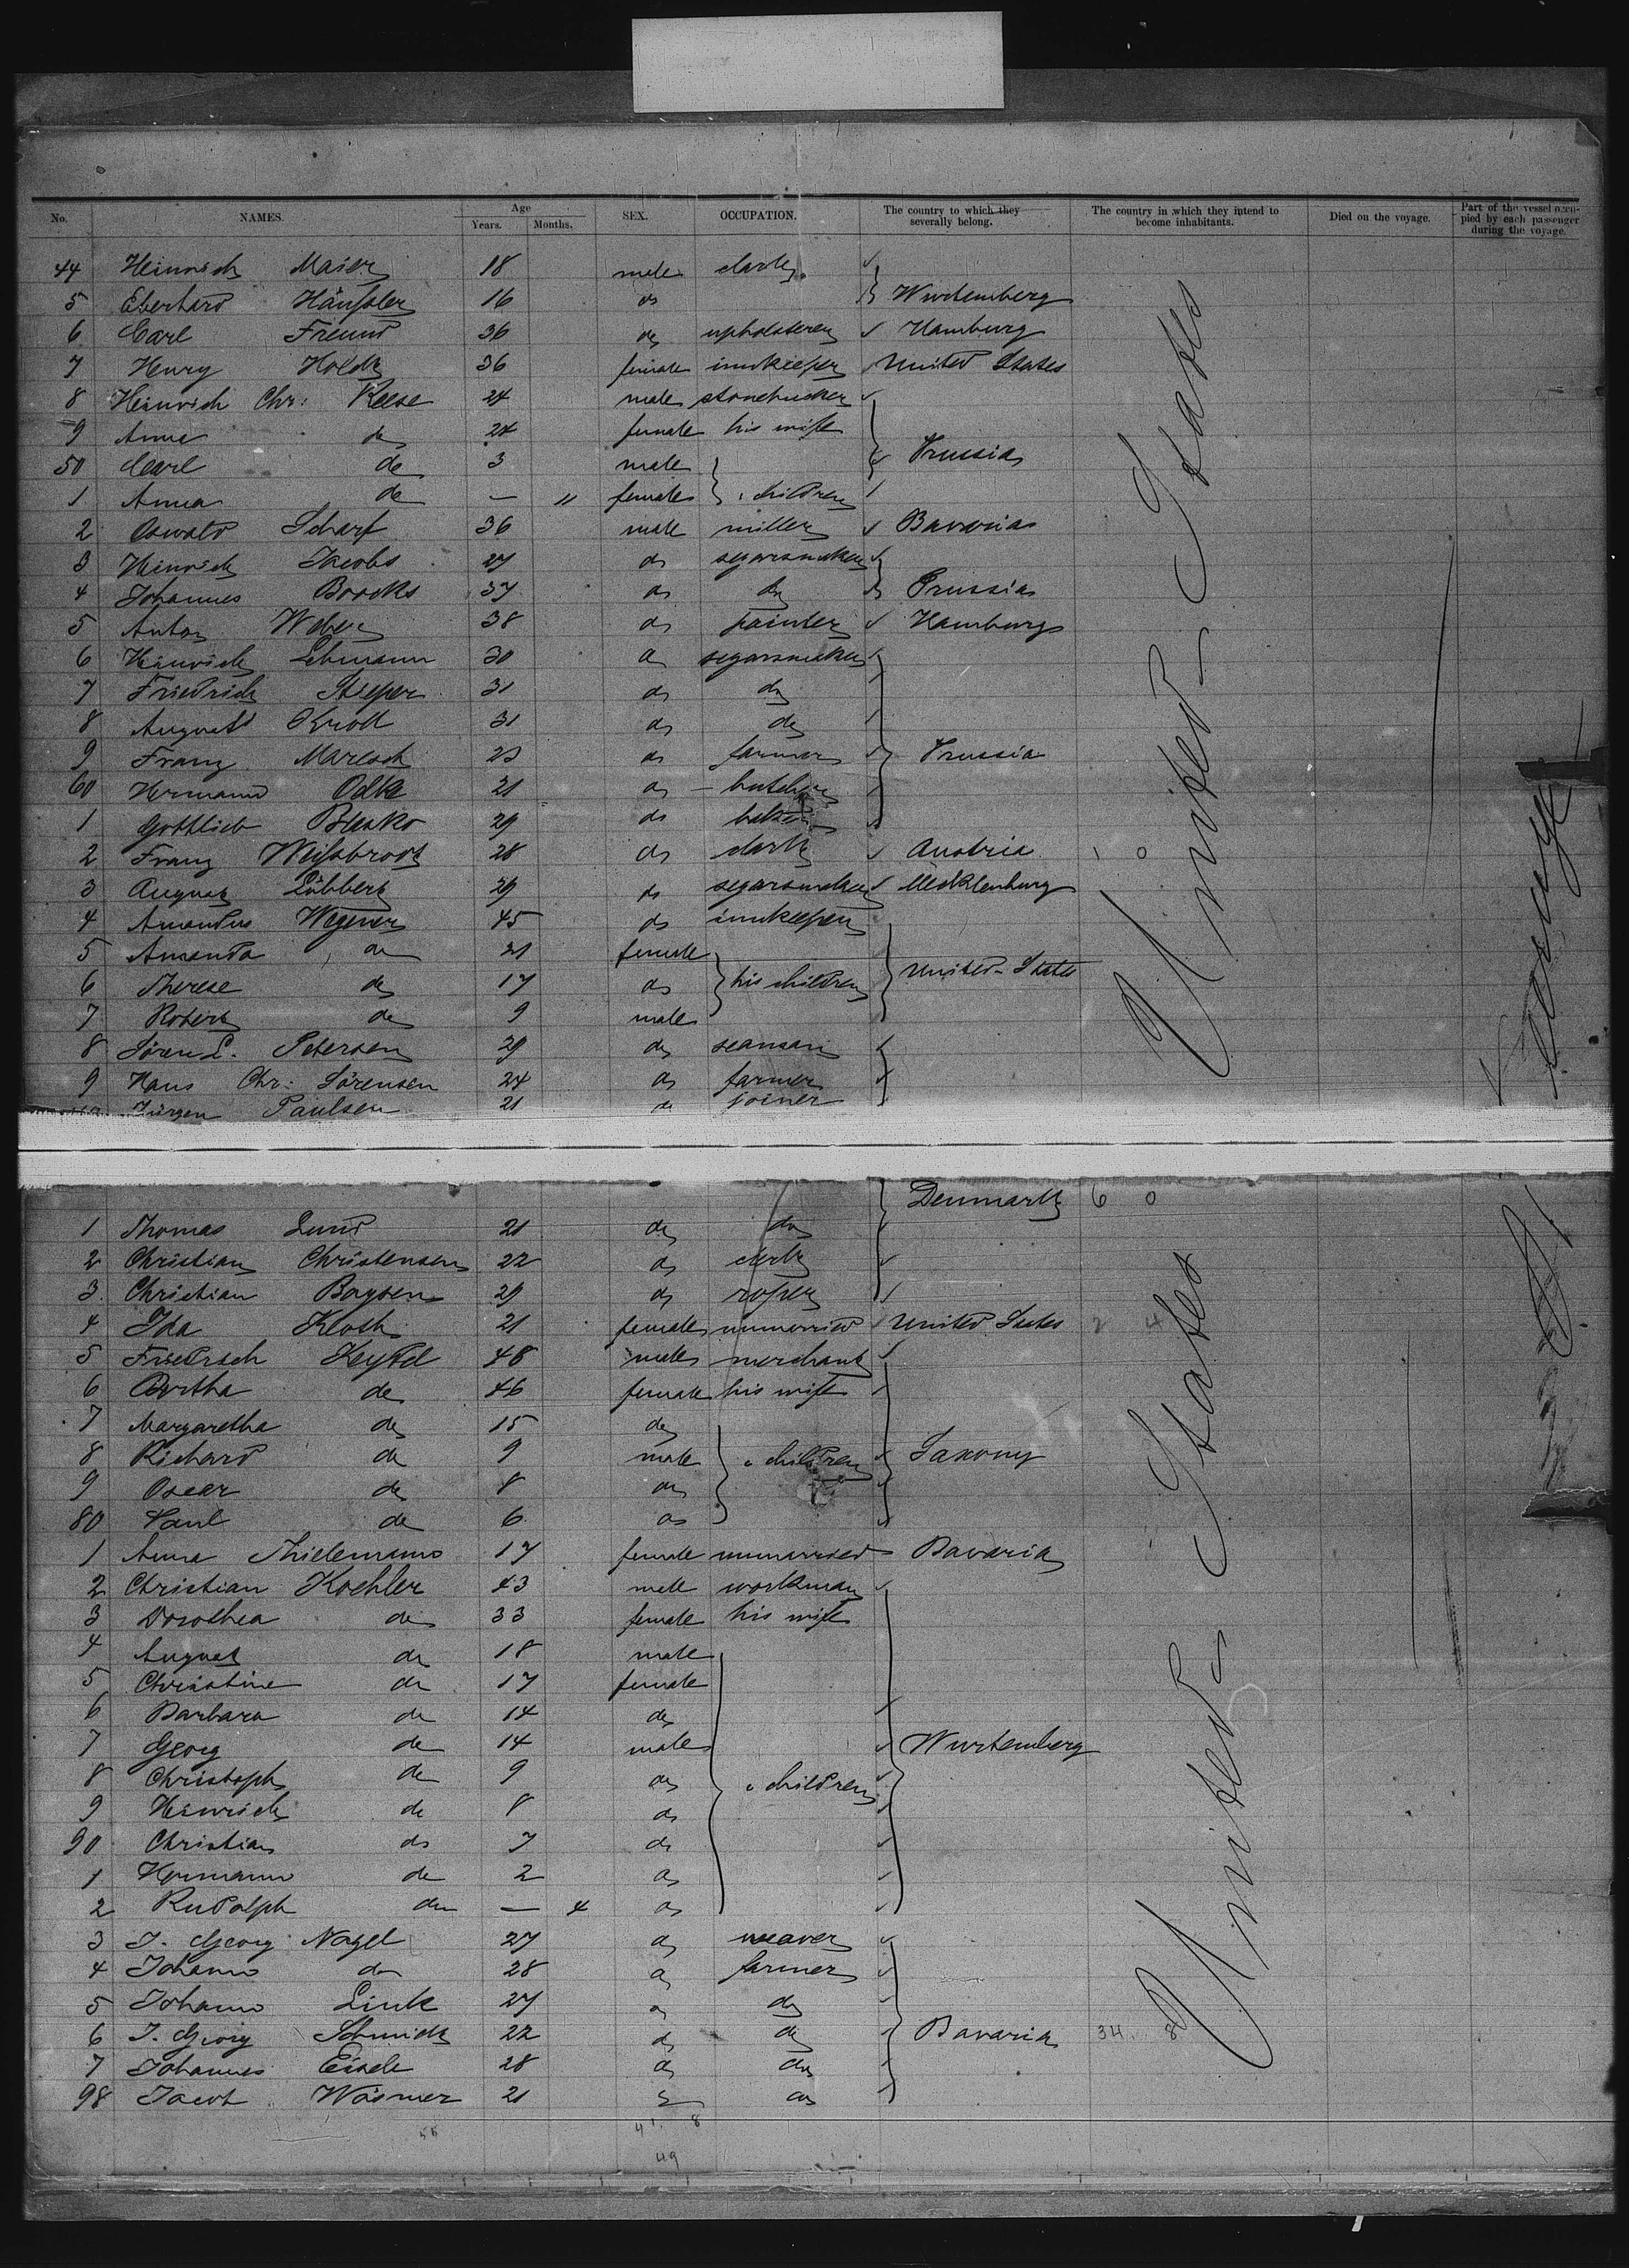 No. NAMES. Age Years. Months. SEX. OCCUPATION. The country to which they severally belong. The country in which they intend to become inhabitants. Died on the voyage. Part of the vessel occupied by each passenger during the voyage.
44 Heinrich Maier 18 male clerk
5 Eberhard Häußler 16 do Wurtemberg
6 Carl Freund 36 do upholsterer Hamburg
7 Henry Holdt 36 female innkeeper United States
8 Heinrich Chr: Reese 24 male
9 Anna do 24 female his wife
50 Carl do 3 male Prussia
1 Anna do — 11 female " children
2 Oswald Scharf 36 male miller Bavaria
3 Heinrich Jacobs 27 do segarsmaker
4 Johannes Boocks 37 do do Prussia
5 Anton Weber 38 do painter Hamburg
6 Heinrich Lehmann 30 do segarsmaker
7 Friedrich 31 do do
8 August Kroll 31 do do
9 Franz Maresch 23 do farmer Prussia
60 Hermann Odke 21 do butcher
1 Gottlieb Blasko 29 do baker
2 Franz Weißbrodt 28 do clerk Austria 1 0
3 August Lübbers 29 do segarsmaker Mecklenburg
4 Amandus Wegener 45 do innkeeper
5 Amanda do 21 female
6 Therese do 17 do his children United-States
7 Robert do 9 male
8 Sören L. Petersen 29 do seaman
9 Hans Chr: Sörensen 24 do farmer
Jürgen Paulsen 21 do joiner
United-States
Steerage
Denmark 6 0
1 Thomas Lund 21 do do
2 Christian Christensen 22 do clerk
3 Christian Boysen 29 do roper
4 Ida Kloth 21 female unmarried United States 2 4
5 Friedrich Keydel 48 male merchant
6 Bertha do 46 female his wife
7 Margaretha do 15 do
8 Richard do 9 male " children Saxony
9 Oscar do 8 do
80 Paul do 6 do
1 Anna Thielemann 17 female unmarried Bavaria
2 Christian Koehler 43 male workman
3 Dorothea do 33 female his wife
4 August do 18 male
5 Christine do 17 female
6 Barbara do 14 do
7 Georg do 14 male Wurtemberg
8 Christoph do 9 do " children
9 Heinrich do 8 do
90 Christian do 7 do
1 Hermann do 2 do
2 Rudolph do — 4 do
3 J. Georg Nagel 27 do weaver
4 Johann do 28 do farmer
5 Johann Link 27 do do
6 J. Georg Schmidt 22 do do Bavaria 34. 8
7 Johannes Eisele 28 do do
98 Jacob Wasmer 21 do do
United-States
41. 8
49